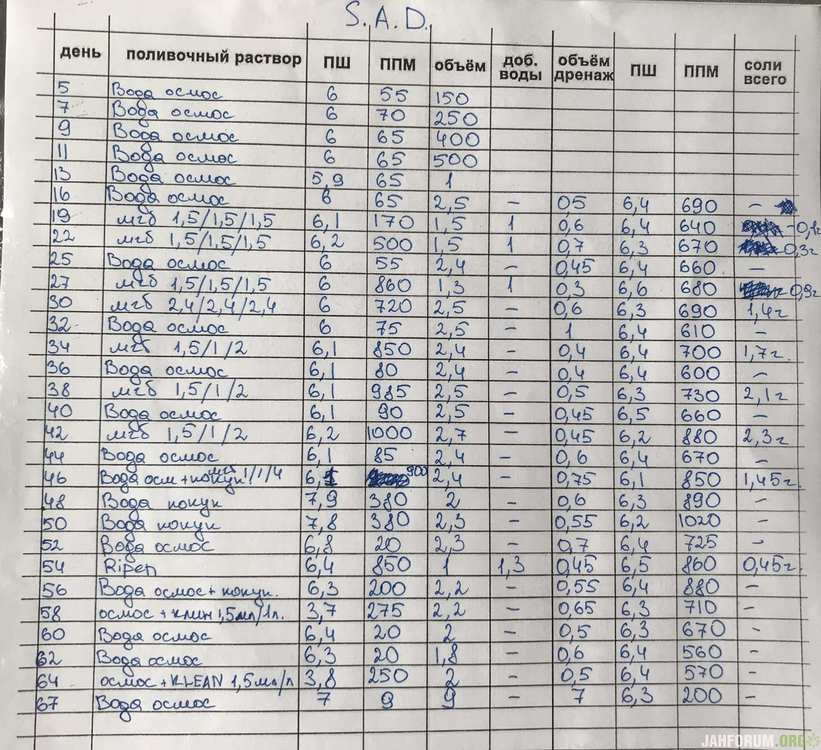 S.A.D.
день поливочный раствор ПШ ППМ объём доб. воды объём дренаж ПШ ППМ соли всего
5 Вода осмос 6 55 150
7 Вода осмос 6 70 250
9 Вода осмос 6 65 400
11 Вода осмос 6 65 500
13 Вода осмос 5,9 65 1
16 Вода осмос 6 65 2,5 – 0,5 6,4 690 –
19 мгб 1,5/1,5/1,5 6,1 170 1,5 1 0,6 6,4 640 -0,1г
22 мгб 1,5/1,5/1,5 6,2 500 1,5 1 0,7 6,3 670 -0,3г
25 Вода осмос 6 55 2,4 – 0,45 6,4 660 –
27 мгб 1,5/1,5/1,5 6 860 1,3 1 0,3 6,6 680 -0,9г
30 мгб 2,4/2,4/2,4 6 720 2,5 – 0,6 6,3 690 1,4г
32 Вода осмос 6 75 2,5 – 1 6,4 610 –
34 мгб 1,5/1/2 6,1 850 2,4 – 0,4 6,4 700 1,7г.
36 Вода осмос 6,1 80 2,4 – 0,4 6,4 600 –
38 мгб 1,5/1/2 6,1 985 2,5 – 0,5 6,3 730 2,1г
40 Вода осмос 6,1 90 2,5 – 0,45 6,5 660 –
42 мгб 1,5/1/2 6,2 1000 2,7 – 0,45 6,2 880 2,3г
44 Вода осмос 6,1 85 2,4 – 0,6 6,4 670 –
46 Вода осм+покуп. 1/1/4 6,1 900 2,4 – 0,75 6,1 850 1,45г.
48 Вода покуп 7,9 380 2 – 0,6 6,3 890 –
50 Вода покуп 7,8 380 2,3 – 0,55 6,2 1020 –
52 Вода осмос 6,8 20 2,3 – 0,7 6,4 725 –
54 Ripen 6,4 850 1 1,3 0,45 6,5 860 0,45г.
56 Вода осмос+покуп. 6,3 200 2,2 – 0,55 6,4 880 –
58 осмос+клин 1,5мл/1л. 3,7 275 2,2 – 0,65 6,3 710 –
60 Вода осмос 6,4 20 2 – 0,5 6,3 670 –
62 Вода осмос 6,3 20 1,8 – 0,6 6,4 560 –
64 осмос+KLEAN 1,5мл/л 3,8 250 2 – 0,5 6,4 570 –
67 Вода осмос 7 9 9 – 7 6,3 200 –
JAHFORUM.ORG